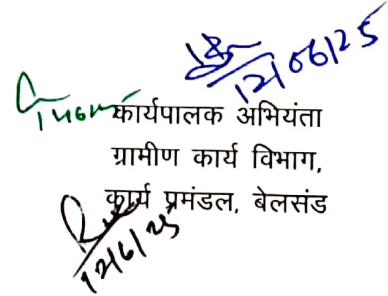 12/06/25
कार्यपालक अभियंता
ग्रामीण कार्य विभाग,
कार्य प्रमंडल, बेलसंड
12/6/25